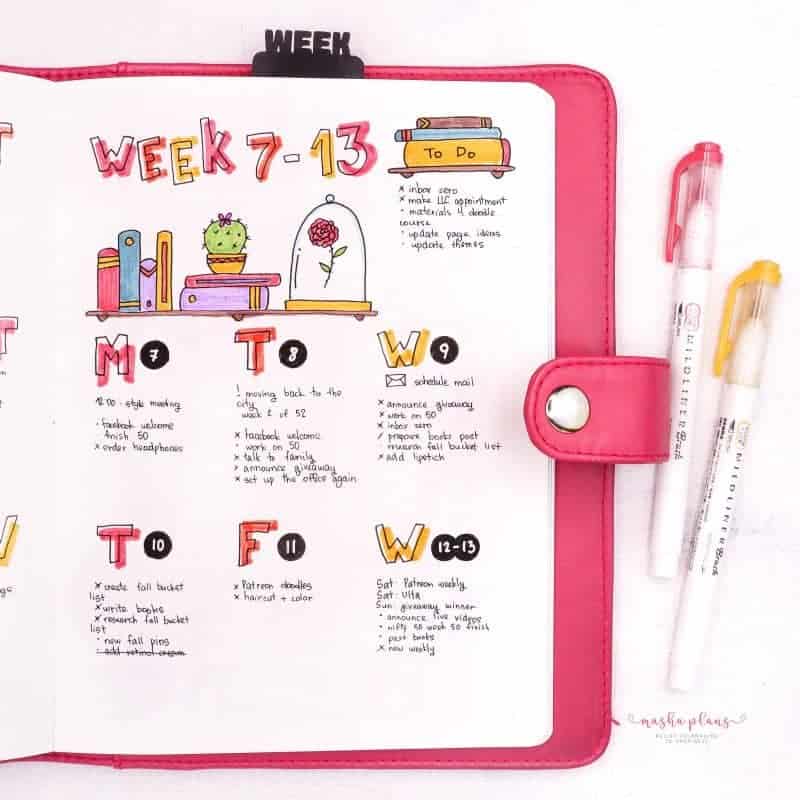 WEEK
WEEK 7-13
To Do
x inbox zero
x make LLC appointment
· materials 4 doodle
course
· update page ideas
· update themes
M 7
12:00 · style meeting
· facebook welcome
finish 50
x order headphones
T 8
! moving back to the
city
week 2 of 52
x facebook welcome
· work on 50
x talk to family
x announce giveaway
x set up the office again
W 9
schedule mail
x announce giveaway
x work on 50
x inbox zero
/ prepare books post
· research fall bucket list
x add lipstick
T 10
x create fall bucket
list
x write books
x research fall bucket
list
· new fall pins
· add retinol cream
F 11
x Patreon doodles
x haircut + color
W 12-13
Sat: Patreon weekly
Sat: Ulta
Sun: giveaway winner
· announce live videos
· nifty 50 week 50 finish
· post books
x new weekly
MILDLINER Brush
MILDLINER Brush
masha plans